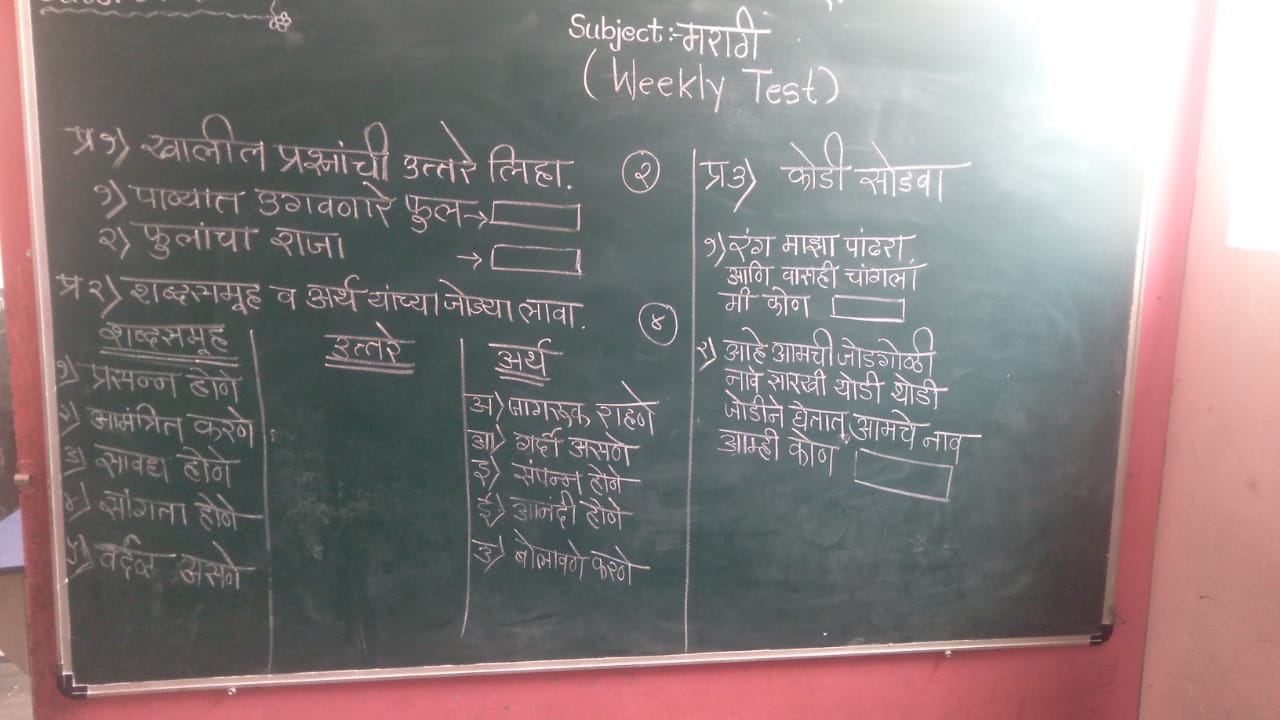 Subject:-मराठी
(Weekly Test)
प्र१) खालील प्रश्नांची उत्तरे लिहा. २
१) पाण्यात उगवणारे फुल→
२) फुलांचा राजा →
प्र२) शब्दसमूह व अर्थ यांच्या जोड्या लावा. ४
शब्दसमूह उत्तरे अर्थ
१) प्रसन्न होणे अ) जागरूक राहणे
२) आमंत्रित करणे आ) गर्दी असणे
३) सावध होणे इ) संपन्न होणे
४) सांगता होणे ई) आनंदी होणे
५) वर्दळ असणे उ) बोलावणे करणे
प्र३) कोडी सोडवा
१) रंग माझा पांढरा,
आणि वासही चांगला
मी कोण
२) आहे आमची जोडगोळी
नावे सारखी थोडी थोडी
जोडीने घेतात आमचे नाव
आम्ही कोण